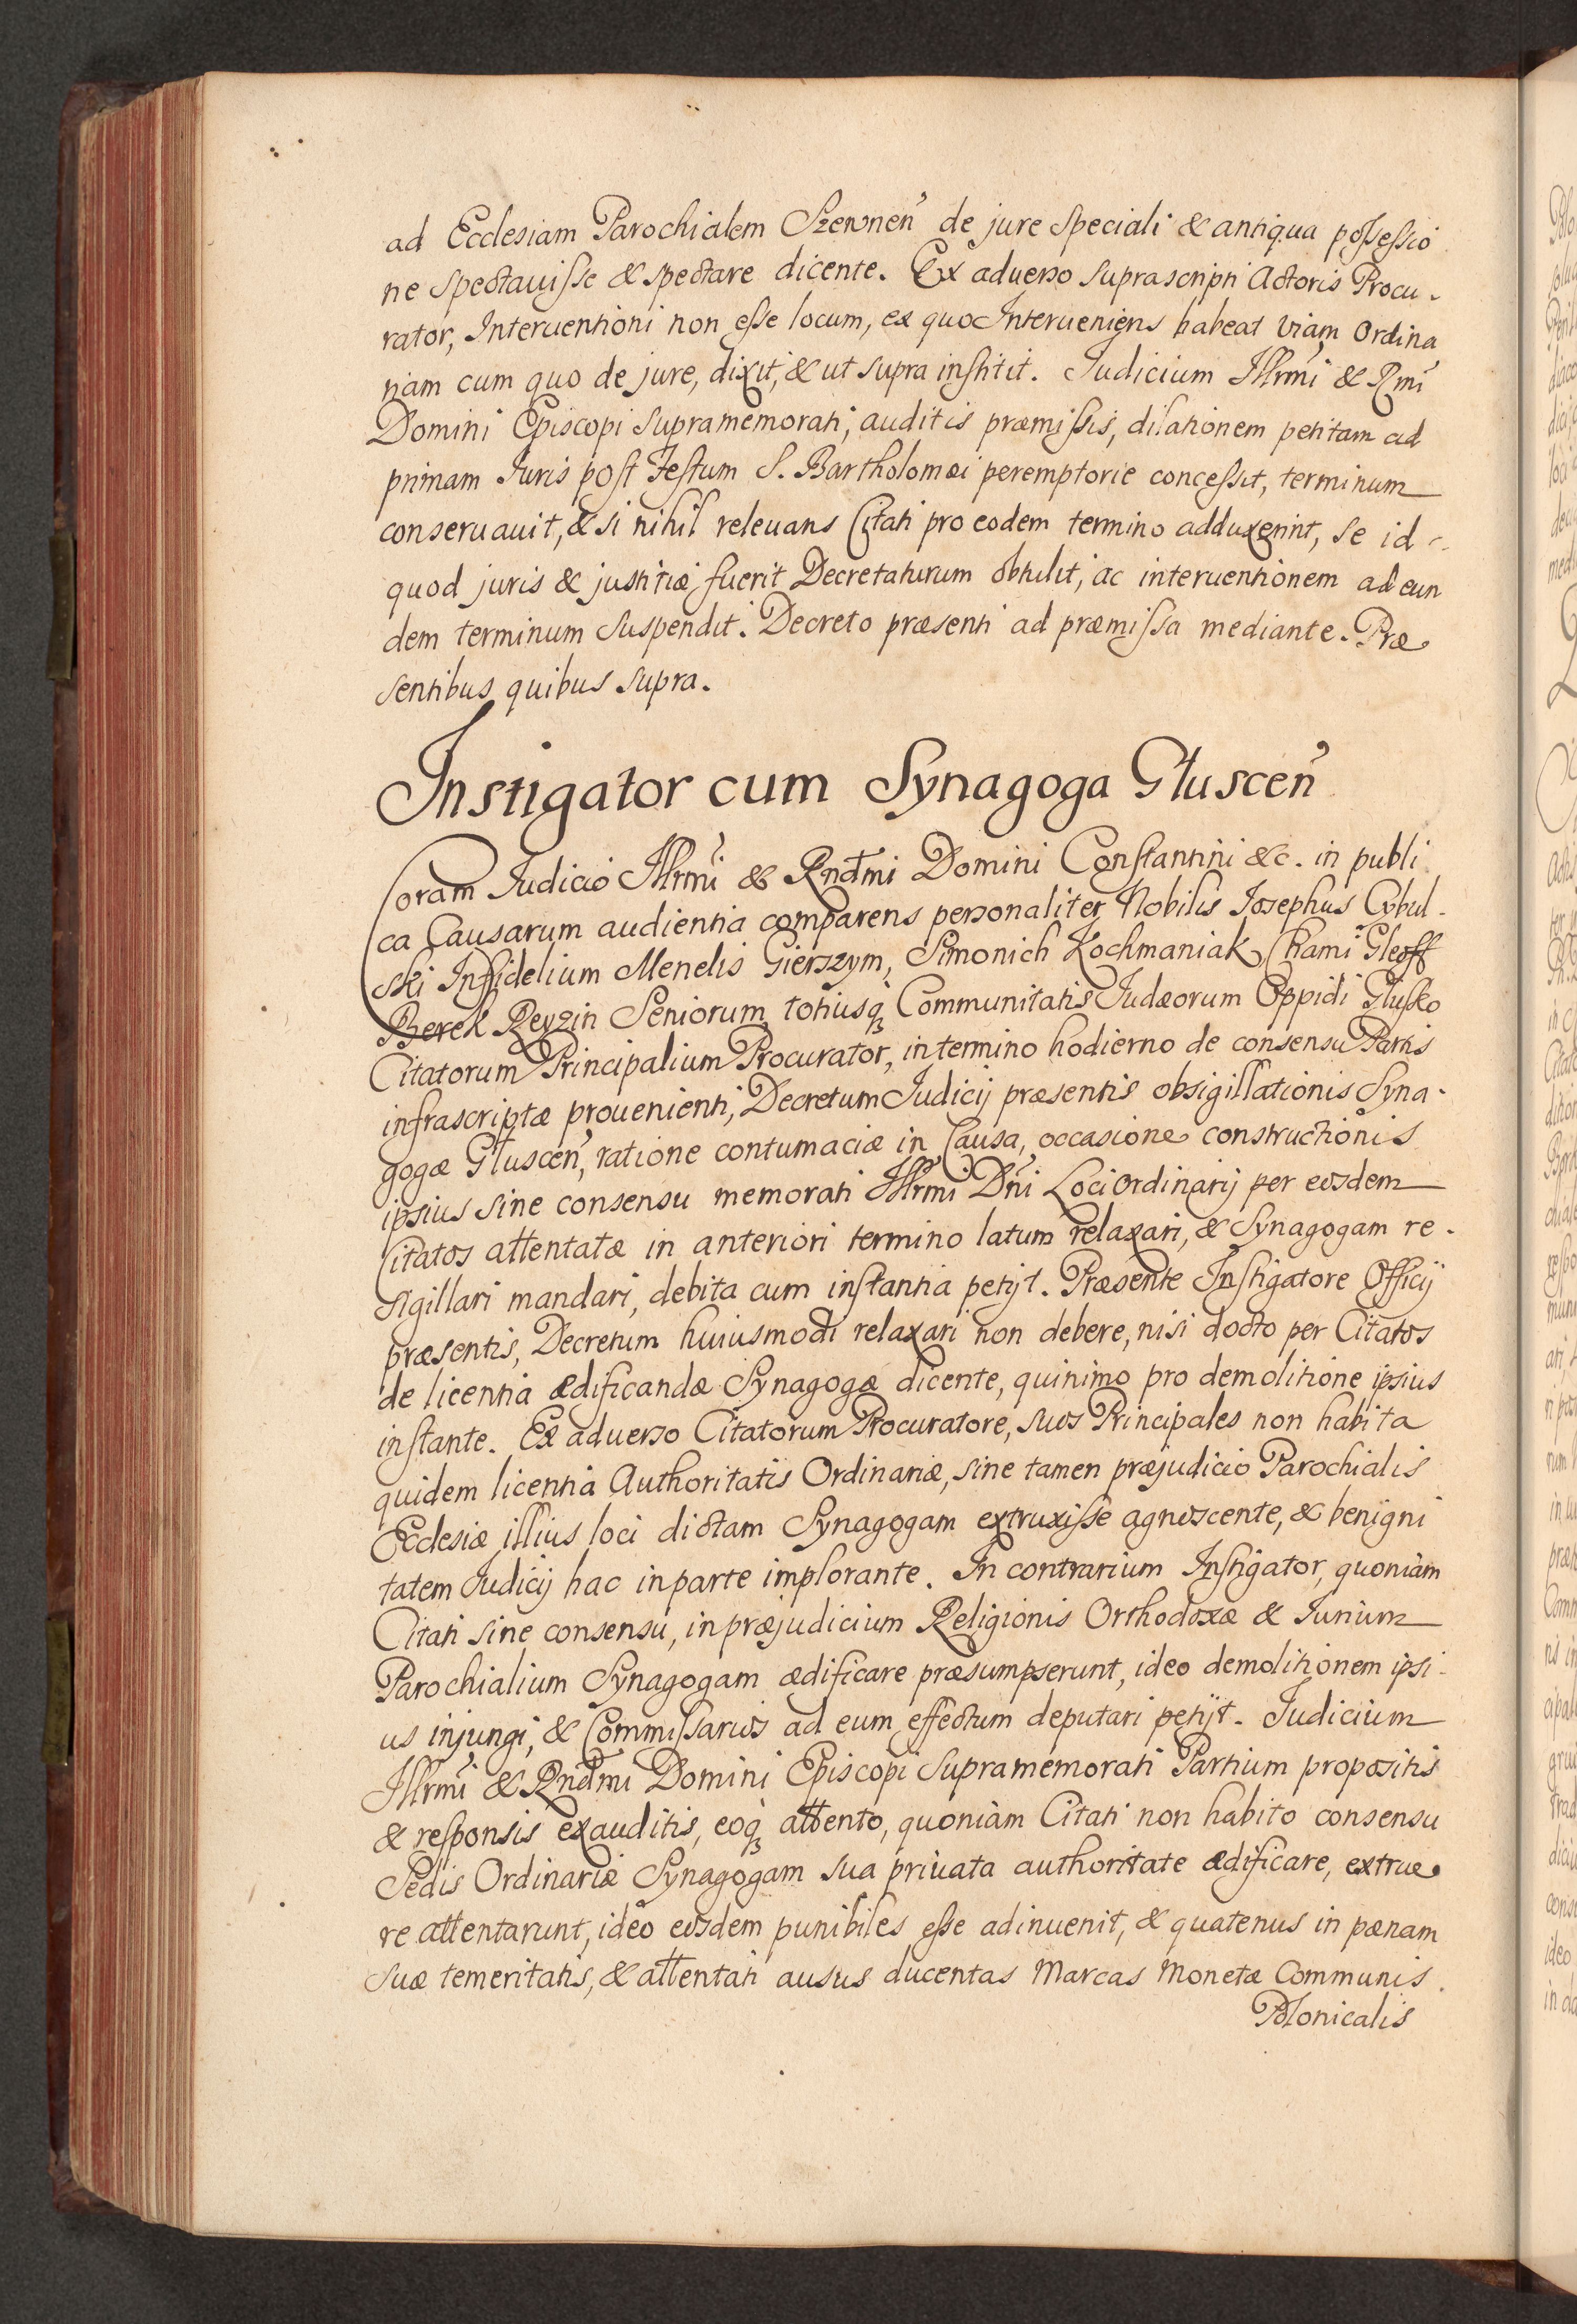 ad Ecclesiam Parochialem Szewnen̄ de jure speciali & antiqua possessio
ne spectauisse & spectare dicente. Ex aduerso suprascripti Actoris Procu-
rator, Interuentioni non esse locum, ex quo Interueniens habeat viam Ordina
riam cum quo de jure, dixit, & ut supra institit. Judicium Illrm̄i & Rm̄i
Domini Episcopi supramemorati, auditis præmissis, dilationem petitam ad
primam Iuris post Festum S. Bartholomæi peremptorie concessit, terminum
conseruauit, & si nihil releuans Citati pro eodem termino adduxerint, se id
quod juris & justitiæ fuerit Decretaturum obtulit, ac interuentionem ad eun
dem terminum suspendit. Decreto præsenti ad præmissa mediante. Præ
sentibus quibus supra.
Instigator cum Synagoga Gluscen̄
Coram Judicio Illrm̄i & Rnd̄mi Domini Constantini &c. in publi
ca Causarum audientia comparens personaliter Nobilis Josephus Cybul-
ski Infidelium Menelis Gierszym, Simonich Kochmaniak, Chami Gleoff
Berek Reyzin Seniorum, totiusq₃ Communitatis Judæorum Oppidi Glusko
Citatorum Principalium Procurator, in termino hodierno de consensu Partis
infrascriptæ prouenienti, Decretum Judicij præsentis obsigillationis Syna-
gogæ Gluscen̄, ratione contumaciæ in Causa, occasione constructionis
ipsius sine consensu memorati Illrm̄i Dn̄i Loci Ordinarij per eosdem
Citatos attentatæ in anteriori termino latum relaxari, & Synagogam re-
sigillari mandari, debita cum instantia petijt. Præsente Instigatore Officij
præsentis, Decretum huiusmodi relaxari non debere, nisi docto per Citatos
de licentia ædificandæ Synagogæ dicente, quinimo pro demolitione ipsius
instante. Ex aduerso Citatorum Procuratore, suos Principales non habita
quidem licentia Authoritatis Ordinariæ, sine tamen præjudicio Parochialis
Ecclesiæ illius loci dictam Synagogam extruxisse agnoscente, & benigni
tatem Judicij hac in parte implorante. In contrarium Instigator, quoniàm
Citati sine consensu, in præjudicium Religionis Orthodoxæ & Iurium
Parochialium Synagogam ædificare præsumpserunt, ideo demolitionem ipsi-
us injungi, & Commissarios ad eum effectum deputari petijt. Judicium
Illrm̄i & Rnd̄mi Domini Episcopi supramemorati Partium propositis
& responsis exauditis, eoq₃ attento, quoniàm Citati non habito consensu
Sedis Ordinariæ Synagogam sua priuata authoritate ædificare, extrue
re attentarunt, ideo eosdem punibiles esse adinuenit, & quatenus in pænam
suæ temeritatis, & attentati ausus ducentas Marcas Monetæ Communis
Polonicalis